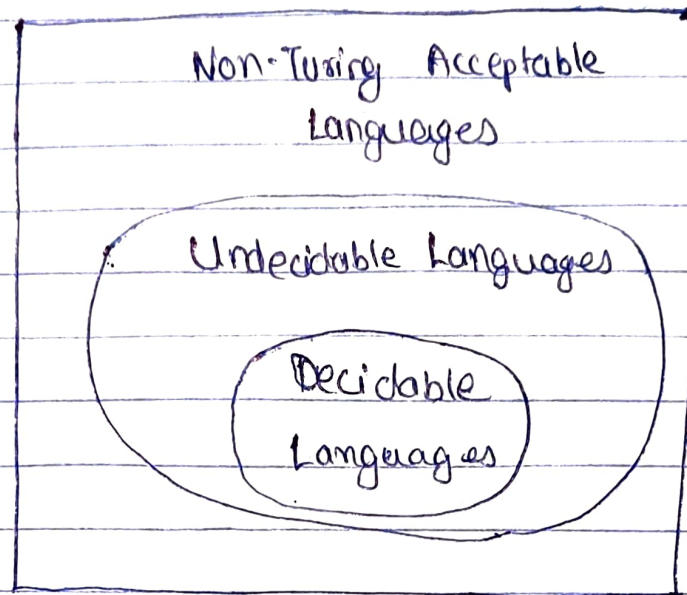 Non-Turing Acceptable
Languages
Undecidable Languages
Decidable
Languages